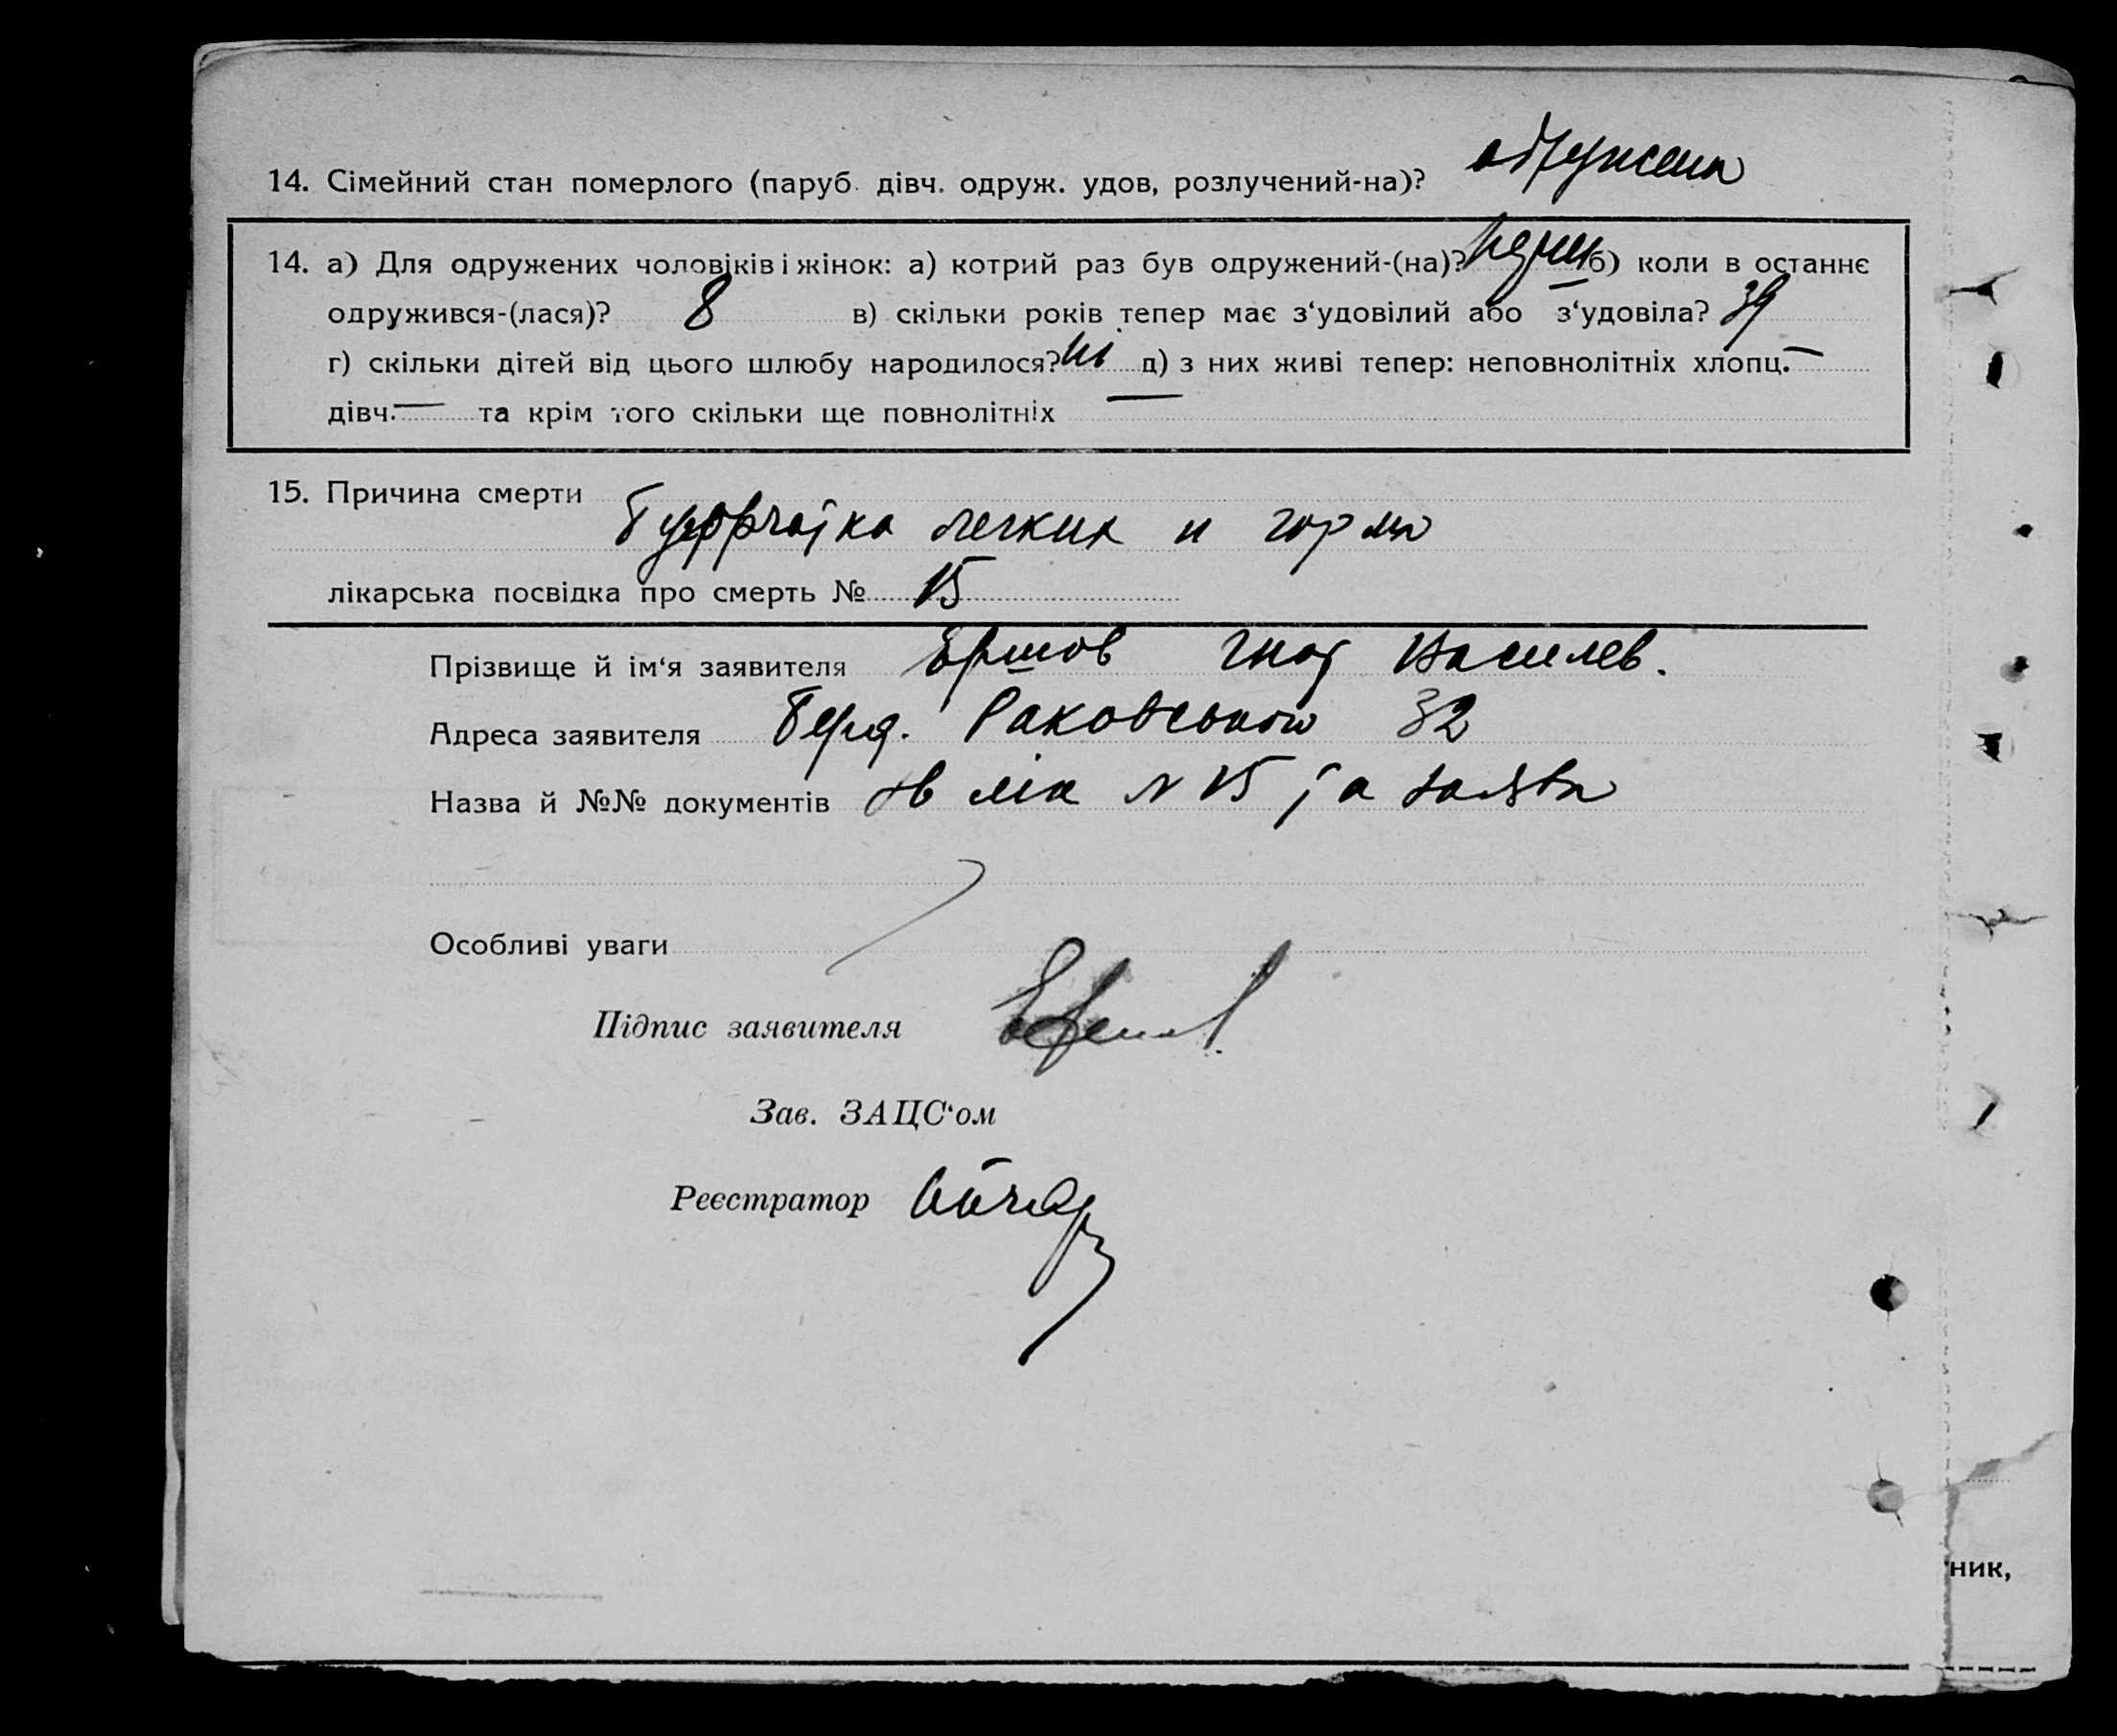 14. Сімейний стан померлого (паруб. дівч. одруж. удов, розлучений-на)? одружена
14. а) Для одружених чоловіків і жінок: а) котрий раз був одружений-(на)? перший б) коли в останнє
одружився-(лася)? 8 в) скільки років тепер має з‘удовілий або з‘удовіла? 39
г) скільки дітей від цього шлюбу народилося? ні д) з них живі тепер: неповнолітніх хлопц. —
дівч. — та крім того скільки ще повнолітніх —
15. Причина смерти
легких и горла
лікарська посвідка про смерть № 15
Прізвище й ім‘я заявителя Ершов Гнат Василев.
Адреса заявителя Раковського 32
Назва й №№ документів лік N 15 та заява
Особливі уваги
Підпис заявителя
Зав. ЗАЦС‘ом
Реєстратор
ник,